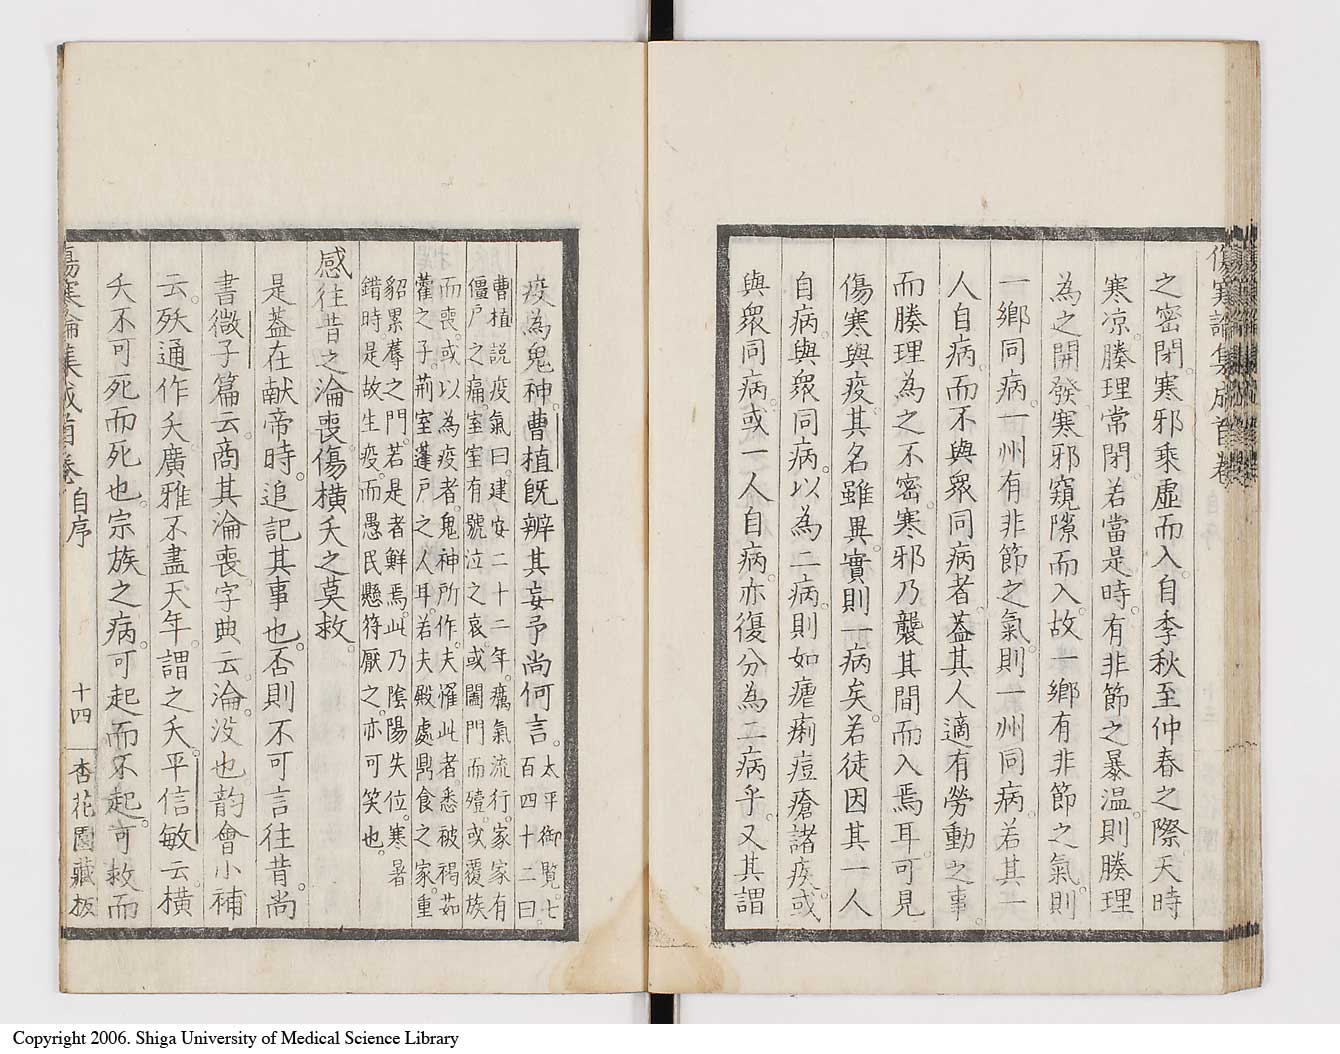 傷寒論集成首卷
之密閉。寒邪乘虛而入。自季秋至仲春之際天時
寒凉。腠理常閉。若當是時有非節之暴溫。則腠理
為之開發寒邪窺隙而入。故一鄉有非節之氣則
一鄉同病。一州有非節之氣。則一州同病。若其一
人自病。而不與眾同病者。蓋其人適有勞動之事。
而腠理為之不密。寒邪乃襲其間而入焉耳。可見
傷寒與疫其名雖異。實則一病矣。若徒因其一人
自病。與眾同病。以為二病。則如瘧痢痘瘡諸疾。或
與眾同病。或一人自病。亦復分為二病乎。又其謂
疫為鬼神。曹植既辨其妄予尚何言。太平御覧。七百四十二曰
曹植說疫氣曰。建安二十二年。癘氣流行。家家有
僵尸之痛。室室有號泣之哀。或闔門而殪。或覆族
而喪。或以為疫者。鬼神所作。夫罹此者。悉被褐茹
藿之子。荊室蓬戶之人耳。若夫殿處鼎食之家。重
貂累蓐之門。若是者鮮焉。此乃陰陽失位。寒暑
錯時是故生疫。而愚民懸符厭之。亦可笑也。
感往昔之淪喪傷橫夭之莫救。
是蓋在献帝時。追記其事也。否則不可言往昔。尚
書微子篇云。商其淪喪字典云。淪。没也韵會小補
云。殀通作夭。廣雅不盡天年。謂之夭。平信敏云。橫
夭不可死而死也。宗族之病。可起而不起。可救而
傷寒論集成首卷 自序 十四 杏花園藏板